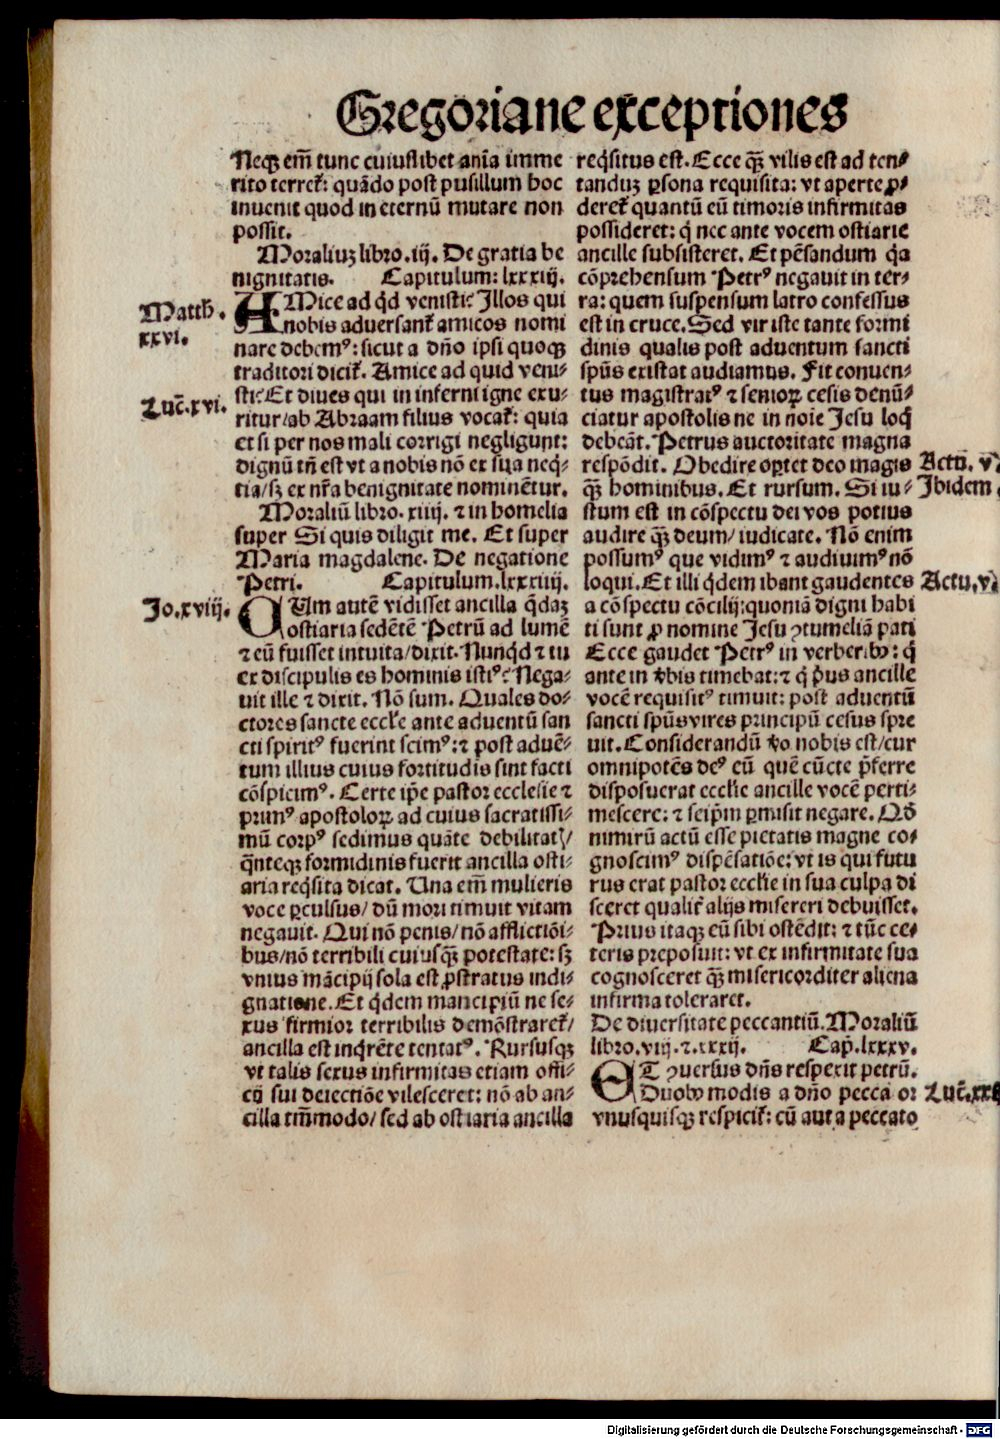 Gregoriane exceptiones
Neqꝫ em̄ tunc cuiuslibet anīa imme
rito terret᷑: quādo post pusillum hoc
inuenit quod in eternū mutare non
possit.
Moraliuꝫ libro. iij. De gratia be
nignitatis. Capitulum: lxxxiij.
Matth.
xxvi.
AMice ad qd̓ venisti: Illos qui
nobis aduersant᷑ amicos nomi
nare debemꝰ: sicut a dn̄o ipsi quoqꝫ
traditori dicit᷑. Amice ad quid veni⸗
sti: Et diues qui in inferni igne exu⸗
Luc̄. xvi.
ritur/ab Abraam filius vocat᷑: quia
et si per nos mali corrigi negligunt:
dignū tn̄ est vt a nobis nō ex sua neq̇⸗
tia/sꝫ ex nr̄a benignitate nominētur.
Moraliū libro. xiiij. ⁊ in homelia
super Si quis diligit me. Et super
Maria magdalene. De negatione
Petri. Capitulum. lxxxiiij.
Jo. xviij.
QUm autē vidisset ancilla q̇daꝫ
ostiaria sedētē Petrū ad lumē
⁊ eū fuisset intuita/dixit. Nunqd̓ ⁊ tu
ex discipulis es hominis istiꝰ: Nega⸗
uit ille ⁊ dixit. Nō sum. Quales do⸗
ctores sancte eccl̓e ante aduentū san
cti spiritꝰ fuerint scimꝰ: ⁊ post aduē⸗
tum illius cuius fortitudis sint facti
cōspicimꝰ. Certe ip̄e pastor ecclesie ⁊
primꝰ apostoloꝝ ad cuius sacratissi⸗
mū corpꝰ sedimus quāte debilitat̓/
q̄nteqꝫ formidinis fuerit ancilla osti⸗
aria reqs̓ita dicat. Una em̄ mulieris
voce ꝑculsus/ dū mori timuit vitam
negauit. Qui nō penis/ nō afflictiōi⸗
bus/nō terribili cuiusqꝫ̄ potestate: sꝫ
vnius mācipij sola est ꝓstratus indi⸗
gnatione. Et qd̓em mancipiū ne se⸗
xus firmior terribilis demōstraret᷑/
ancilla est inqr̓ēte tentatꝰ. Rursusqꝫ
vt talis sexus infirmitas etiam offi⸗
cij sui deiectiōe vilesceret: nō ab an⸗
cilla tm̄modo/ sed ab ostiaria ancilla
reqs̓itus est. Ecce qꝫ̄ vilis est ad ten⸗
tanduꝫ ꝑsona requisita: vt aperte ꝓ⸗
deret᷑ quantū eū timoris infirmitas
possideret: q̇ nec ante vocem ostiarie
ancille subsisteret. Et pēsandum q̇a
cōprehensum Petrꝰ negauit in ter⸗
ra: quem suspensum latro confessus
est in cruce. Sed vir iste tante formi
dinis qualis post aduentum sancti
spūs existat audiamus. Fit conuen⸗
tus magistratꝰ ⁊ senioꝝ cesis denū⸗
ciatur apostolis ne in noīe Jesu loq̇
debeāt. Petrus auctoritate magna
respōdit. Obedire oꝑtet deo magis
Actū. v.
qꝫ̄ hominibus. Et rursum. Si iu⸗
Ibidem
stum est in cōspectu dei vos potius
audire qꝫ̄ deum/ iudicate. Nō enim
possumꝰ que vidimꝰ ⁊ audiuimꝰ nō
loqui. Et illi qd̓em ibant gaudentes
Actu. v.
a cōspectu cōcilij: quoniā digni habi
ti sunt ꝓ nomine Jesu ꝯtumeliā pati
Ecce gaudet Petrꝰ in verberibꝰ: q̇
ante in v̓bis timebat: ⁊ q̇ pi̓us ancille
vocē requisitꝰ timuit: post aduentū
sancti spūs vires principū cesus spre
uit. Considerandū v̓o nobis est/cur
omnipotēs deꝰ eū quē cūcte p̄ferre
disposuerat eccl̓ie ancille vocē perti⸗
mescere: ⁊ seip̄m ꝑmisit negare. Qd̓
nimirū actū esse pietatis magne co⸗
gnoscimꝰ dispēsatiōe: vt is qui futu
rus erat pastor eccl̓ie in sua culpa di
sceret qualit᷑ alijs misereri debuisset.
Prius itaqꝫ eū sibi ostēdit: ⁊ tūc ce⸗
teris preposuit: vt ex infirmitate sua
cognosceret qꝫ̄ misericorditer aliena
infirma toleraret.
De diuersitate peccantiū. Moraliū
libro. viij. ⁊. xxxij. Cap̄. lxxxv.
ET ꝯuersus dn̄s respexit petrū.
Duobꝰ modis a dn̄o pecca or
vnusquisqꝫ respicit᷑: cū aut a peccato
Digitalisierung gefördert durch die Deutsche Forschungsgemeinschaft - DFG